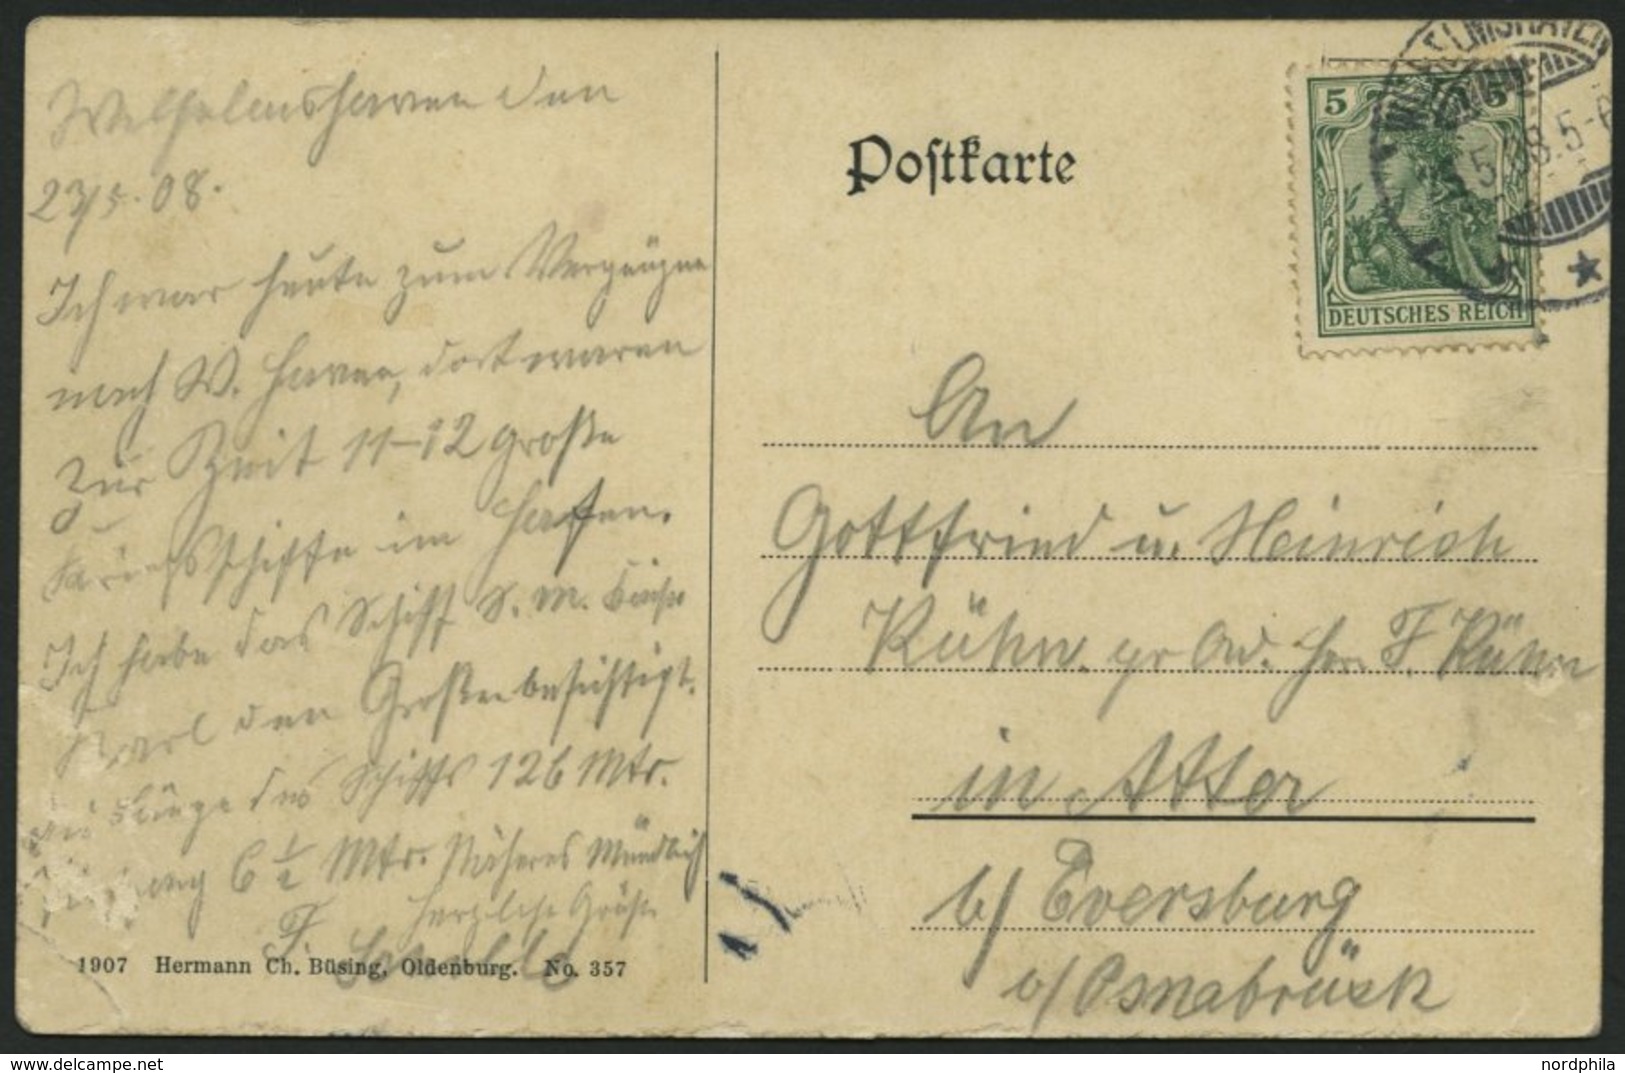 Wilhelmshaven den
23/5.08.
Ich war heute zum Vergnügen
nach W. haven, dort waren
zur Zeit 11-12 große
Kriegsschiffe im Hafen.
Ich habe das Schiff S. M. Kaiser
Karl den Großen besichtigt.
die Länge des Schiffs 126 Mtr.
6 1/2 Mtr. Näheres Mündlich
herzliche Grüße
F.
1907 Hermann Ch. Büsing, Oldenburg. No. 357
Postkarte
5 5
DEUTSCHES REICH
WILHELMSHAVEN
5.08.5-6
An
Gottfried u. Heinrich
Kühn. pr Ad. Hr. F. Kühn
in Atter
b/ Eversburg
b/ Osnabrück
nordphila